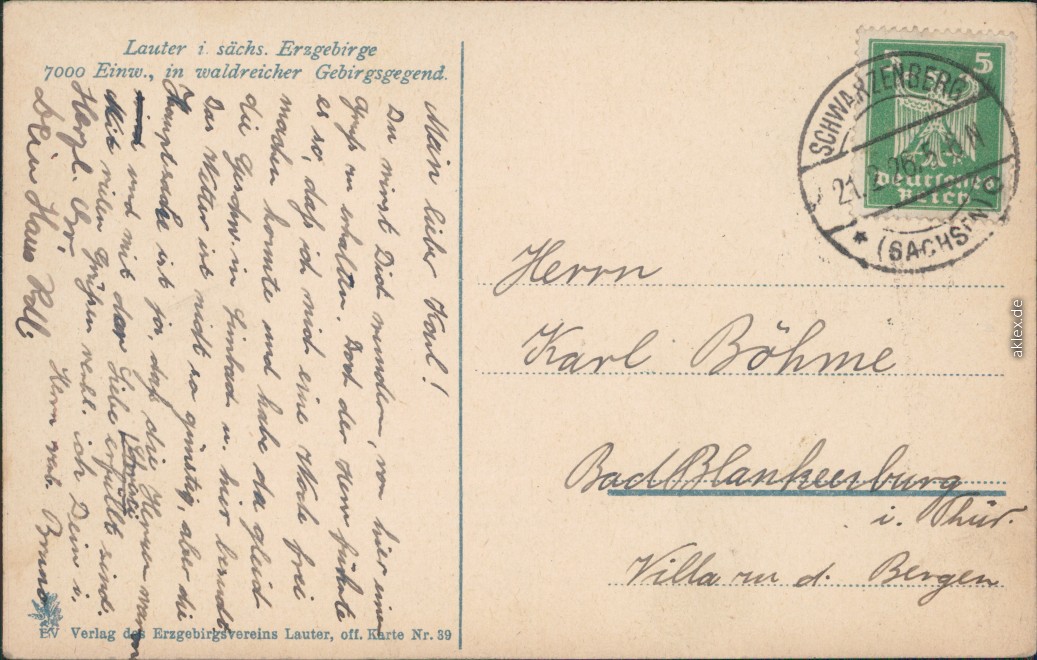 Lauter i. sächs. Erzgebirge
7000 Einw., in waldreicher Gebirgsgegend.
Mein lieber Karl!
Du wirst Dich wundern, von hier einen
Gruß zu erhalten. Doch der Herr führte
es so, daß ich mich eine Woche frei
machen konnte und habe da gleich
die Geschw. in Limbach u. hier besucht
Das Wetter ist nicht so günstig, aber die
Hauptsache ist ja, daß die Herzen warm
sind und mit der Liebe erfüllt sind.
Mit vielen Grüßen verbl. ich Dein i.
Herrn verb. Bruno
Herzl. Gr.
Dein Hans
5 5
SCHWARZENBERG
21.2.26.5-6 N
* (SACHSEN) c
Deutsches
Reich
Herrn
Karl Böhme
Bad Blankenburg
i. Thür.
Villa zu d. Bergen
EV Verlag des Erzgebirgsvereins Lauter, off. Karte Nr. 39
aklex.de